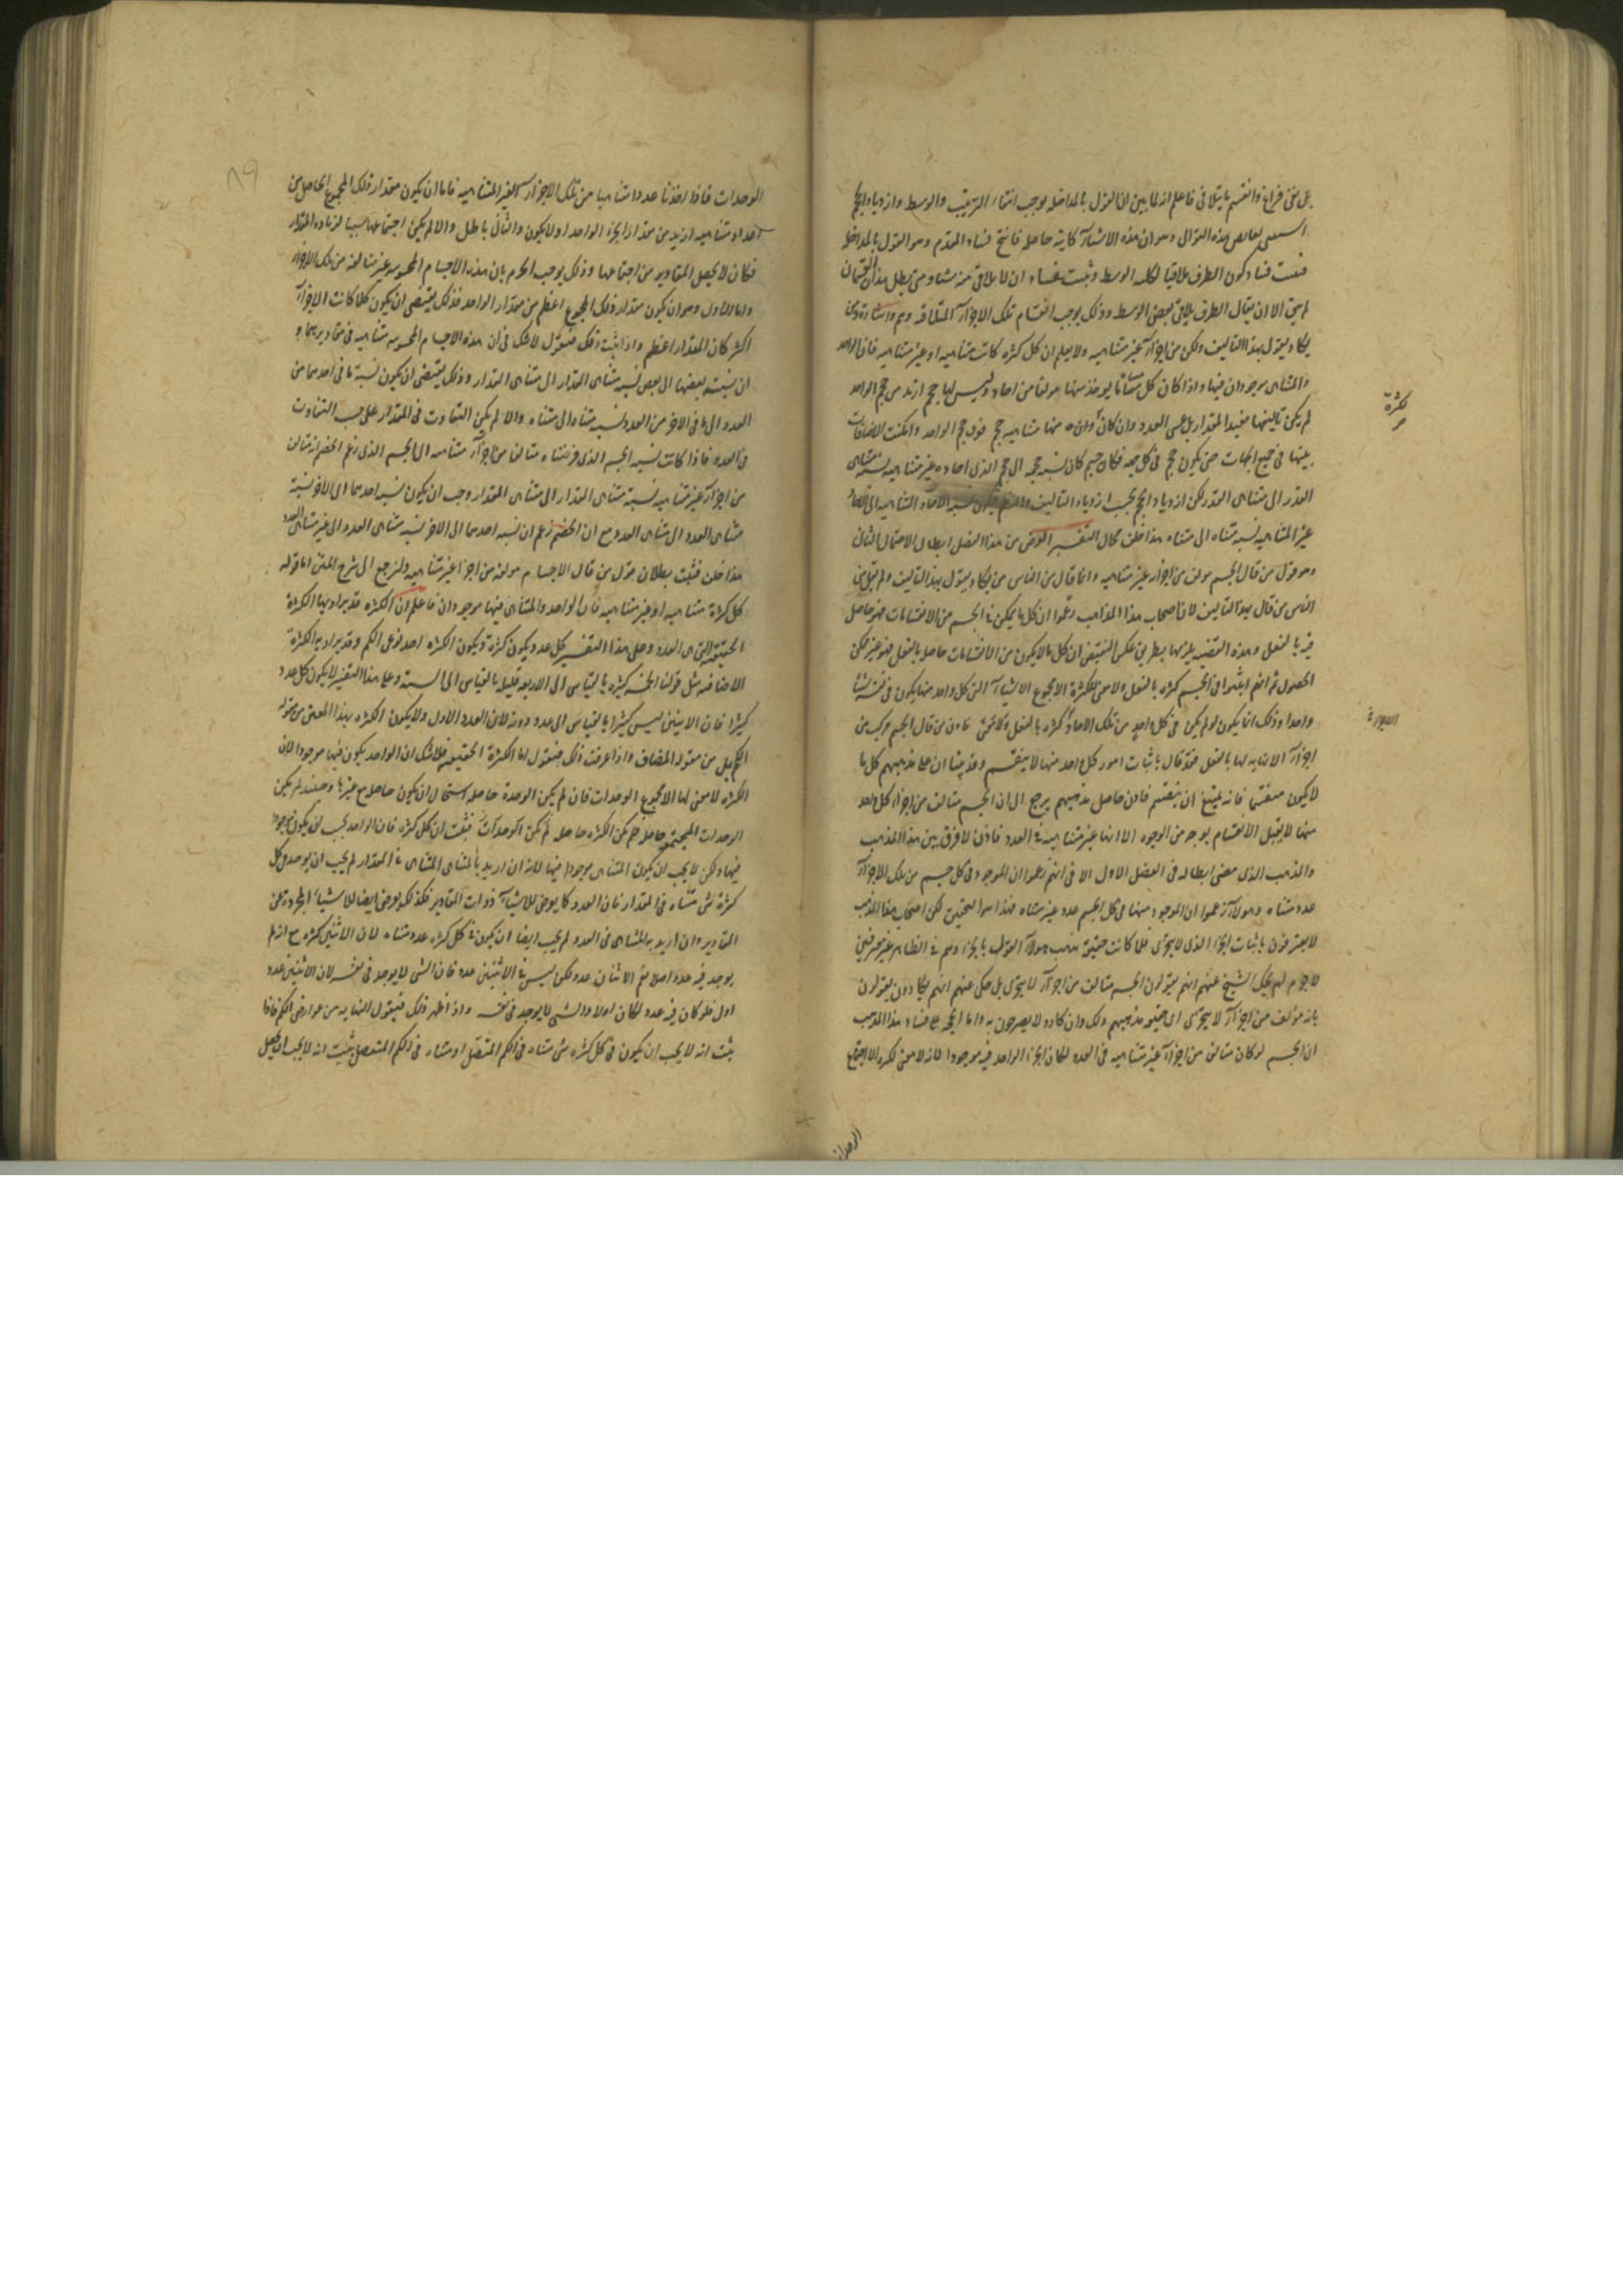 على نفى فراغ وانقسم ما يتلاقى فاعلم انه لما بين ان القول بالمداخلة يوجب انتفاء الترتيب والوسط وازدياد الحجم
لنقيض هذه التوالى وهو ان هذه الاشياء كاينة حاصلة فانتج فساد المقدم وهو القول بالمداخلة
فثبت فساد كون الطرف ملاقيا لكلية الوسط وثبت فساد ان لا يلاقى منه شيئا ومتى بطل هذان القسمان
لم يبق الا ان يقال الطرف يلاقى بعض الوسط وذلك يوجب انقسام تلك الاجزاء المتلاقية وهم واشارة ومن
يكاد يقول بهذا التاليف ولكن من اجزاء غير متناهية ولا يعلم ان كل كثرة كانت متناهية او غير متناهية فان الواحد
والمتناهى موجودان فيها واذا كان كل متناه يوخذ منها مولفا من احاد وليس لها حجم ازيد من حجم الواحد
لم يكن تاليفها مفيدا للمقدار بل عسى العدد وان كان منها متناهية حجم فوق حجم الواحد وامكنت الاضافات
بينها فى جميع الجهات حتى يكون حجم فى كل جهة فكان جسم كان نسبة حجمه الى حجم الذى احاده غير متناهية نسبة متناهى
القدر الى متناهى القدر لكن ازدياد الحجم بحسب ازدياد التاليف والنظم فيكون نسبة الاحاد المتناهية الى الاحاد
غير المتناهية نسبة متناه الى متناه هذا خلف محال التفسير الغرض من هذا الفصل ابطال الاحتمال الثانى
وهو قول من قال الجسم مولف من اجزاء غير متناهية وانما قال من الناس من يكاد يقول بهذا التاليف ولم يقل من
الناس من قال بهذا التاليف لان اصحاب هذا المذهب زعموا ان كل ما يمكن فى الجسم من الانقسامات فهو حاصل
فيه بالفعل وهذه القضية يلزمها بطريق عكس النقيض ان كل ما لا يكون من الانقسامات حاصلا بالفعل فهو غير ممكن
الحصول ثم انهم اثبتوا فى الجسم كثرة بالفعل ولا معنى للكثرة الا مجموع الاشياء التى كل واحد منها يكون فى نفسه شيئا
واحدا وذلك انما يكون لو لم يكن فى كل واحد من تلك الاحاد كثرة بالفعل فاذن من قال الجسم مركب من
اجزاء لا نهاية لها بالفعل فقد قال باثبات امور كل واحد منها لا ينقسم وقد بينا ان على مذهبهم كل ما
لا يكون منقسما فانه يمتنع ان ينقسم فاذن حاصل مذهبهم يرجع الى ان الجسم متالف من اجزاء كل واحد
منها لا يقبل الانقسام بوجه من الوجوه الا انها غير متناهية فى العدد فاذن لا فرق بين هذا المذهب
والمذهب الذى مضى ابطاله فى الفصل الاول الا فى انهم زعموا ان الموجود فى كل جسم من تلك الاجزاء
عدد متناه وهولاء زعموا ان الموجود منها فى كل الجسم عدد غير متناه فهذا هو التحقيق لكن اصحاب هذا المذهب
لا يعترفون باثبات الجزء الذى لا يتجزى فلما كانت حقيقة مذهب هولاء القول بالجزء وهم فى الظاهر غير معترفين
لا جرم لم يحك الشيخ عنهم انهم يقولون الجسم متالف من اجزاء لا يتجزى بل حكى عنهم انهم يكادون يقولون
بانه مولف من اجزاء لا يتجزى اى حقيقة مذهبهم ذلك وان كانوا لا يصرحون به واما الحجة على فساد هذا المذهب
ان الجسم لو كان متالفا من اجزاء غير متناهية فى العدد لكان الجزء الواحد فيه موجودا لانه لا معنى للكثرة الا اجتماع
كثرة
الوحدات
٨٩
الوحدات فاذا اخذنا عددا متناهيا من تلك الاجزاء الغير المتناهية فاما ان يكون مقدار ذلك المجموع الحاصل من
احاد متناهية ازيد من مقدار الجزء الواحد او لا يكون والثانى باطل والا لم يكن اجتماعها سببا لزيادة المقدار
فكان لا يحصل المقادير من اجتماعها وذلك يوجب الجزم بان هذه الاجسام المحسوسة غير متالفة من تلك الاجزاء
واما الاول وهو ان يكون مقدار ذلك المجموع اعظم من مقدار الواحد فذلك يقتضى ان يكون كلما كانت الاجزاء
اكثر كان المقدار اعظم واذا ثبت ذلك فنقول لا شك فى ان هذه الاجسام المحسوسة متناهية فى مقاديرها و
ان نسبة بعضها الى بعض نسبة متناهى المقدار الى متناهى المقدار وذلك يقتضى ان يكون نسبة ما فى احدهما من
العدد الى ما فى الاخر من العدد نسبة متناه الى متناه والا لم يكن التفاوت فى المقدار على حسب التفاوت
فى العدد فاذا كانت نسبة الجسم الذى فرضناه متالفا من اجزاء متناهية الى الجسم الذى زعم الخصم انه متالف
من اجزاء غير متناهية نسبة متناهى المقدار الى متناهى المقدار وجب ان يكون نسبة احدهما الى الاخر نسبة
متناهى العدد الى متناهى العدد مع ان الخصم زعم ان نسبة احدهما الى الاخر نسبة متناهى العدد الى غير متناهى العدد
هذا خلف فثبت بطلان قول من قال الاجسام مولفة من اجزاء غير متناهية ولنرجع الى شرح المتن اما قوله
كل كثرة متناهية او غير متناهية فان الواحد والمتناهى فيها موجودان فاعلم ان الكثرة قد يراد بها الكثرة
الحقيقية التى هى العدد وعلى هذا التفسير كل عدد يكون كثرة ويكون الكثرة احد نوعى الكم وقد يراد به الكثرة
الاضافية مثل قولنا الخمسة كثيرة بالقياس الى الاربعة قليلة بالقياس الى الستة وعلى هذا التفسير لا يكون كل عدد
كثيرا فان الاثنين ليس كثيرا بالقياس الى عدد دونه لانه العدد الاول ولا يكون الكثرة بهذا المعنى من مقولة
الكم بل من مقولة المضاف واذا عرفت ذلك فنقول اما الكثرة الحقيقية فلا شك ان الواحد يكون فيها موجودا لان
الكثرة لا معنى لها الا مجموع الوحدات فان لم يكن الوحدة حاصلة استحال ان يكون حاصلا مع غيرها وحينئذ لم يكن
الوحدات المجتمعة حاصلة فلم يكن الكثرة حاصلة فثبت ان كل كثرة فان الواحد يجب ان يكون موجودا
فيها ولكن لا يجب ان يكون المتناهى موجودا فيها لانه ان اريد بالمتناهى المتناهى فى المقدار لم يجب ان يوجد فى كل
كثرة شى متناه فى المقدار فان العدد كما يعرض للاشياء ذوات المقادير فكذلك يعرض ايضا للاشياء المجردة عن
المقادير وان اريد به المتناهى فى العدد لم يجب ايضا ان يكون فى كل كثرة عدد متناه لان الاثنين كثرة مع انه لم
يوجد فيه عدد اصلا نعم الاثنان عدد لكن ليس فى الاثنين عدد فان الشى لا يوجد فى نفسه لان الاثنين عدد
اول فلو كان فيه عدد لكان اولا والشى لا يوجد فى نفسه واذا ظهر ذلك فنقول النهاية من عوارض الكم فاذا
ثبت انه لا يجب ان يكون فى كل كثرة شى متناه فى الكم المتصل او متناه فى الكم المنفصل ثبت انه لا يجب ان يحصل